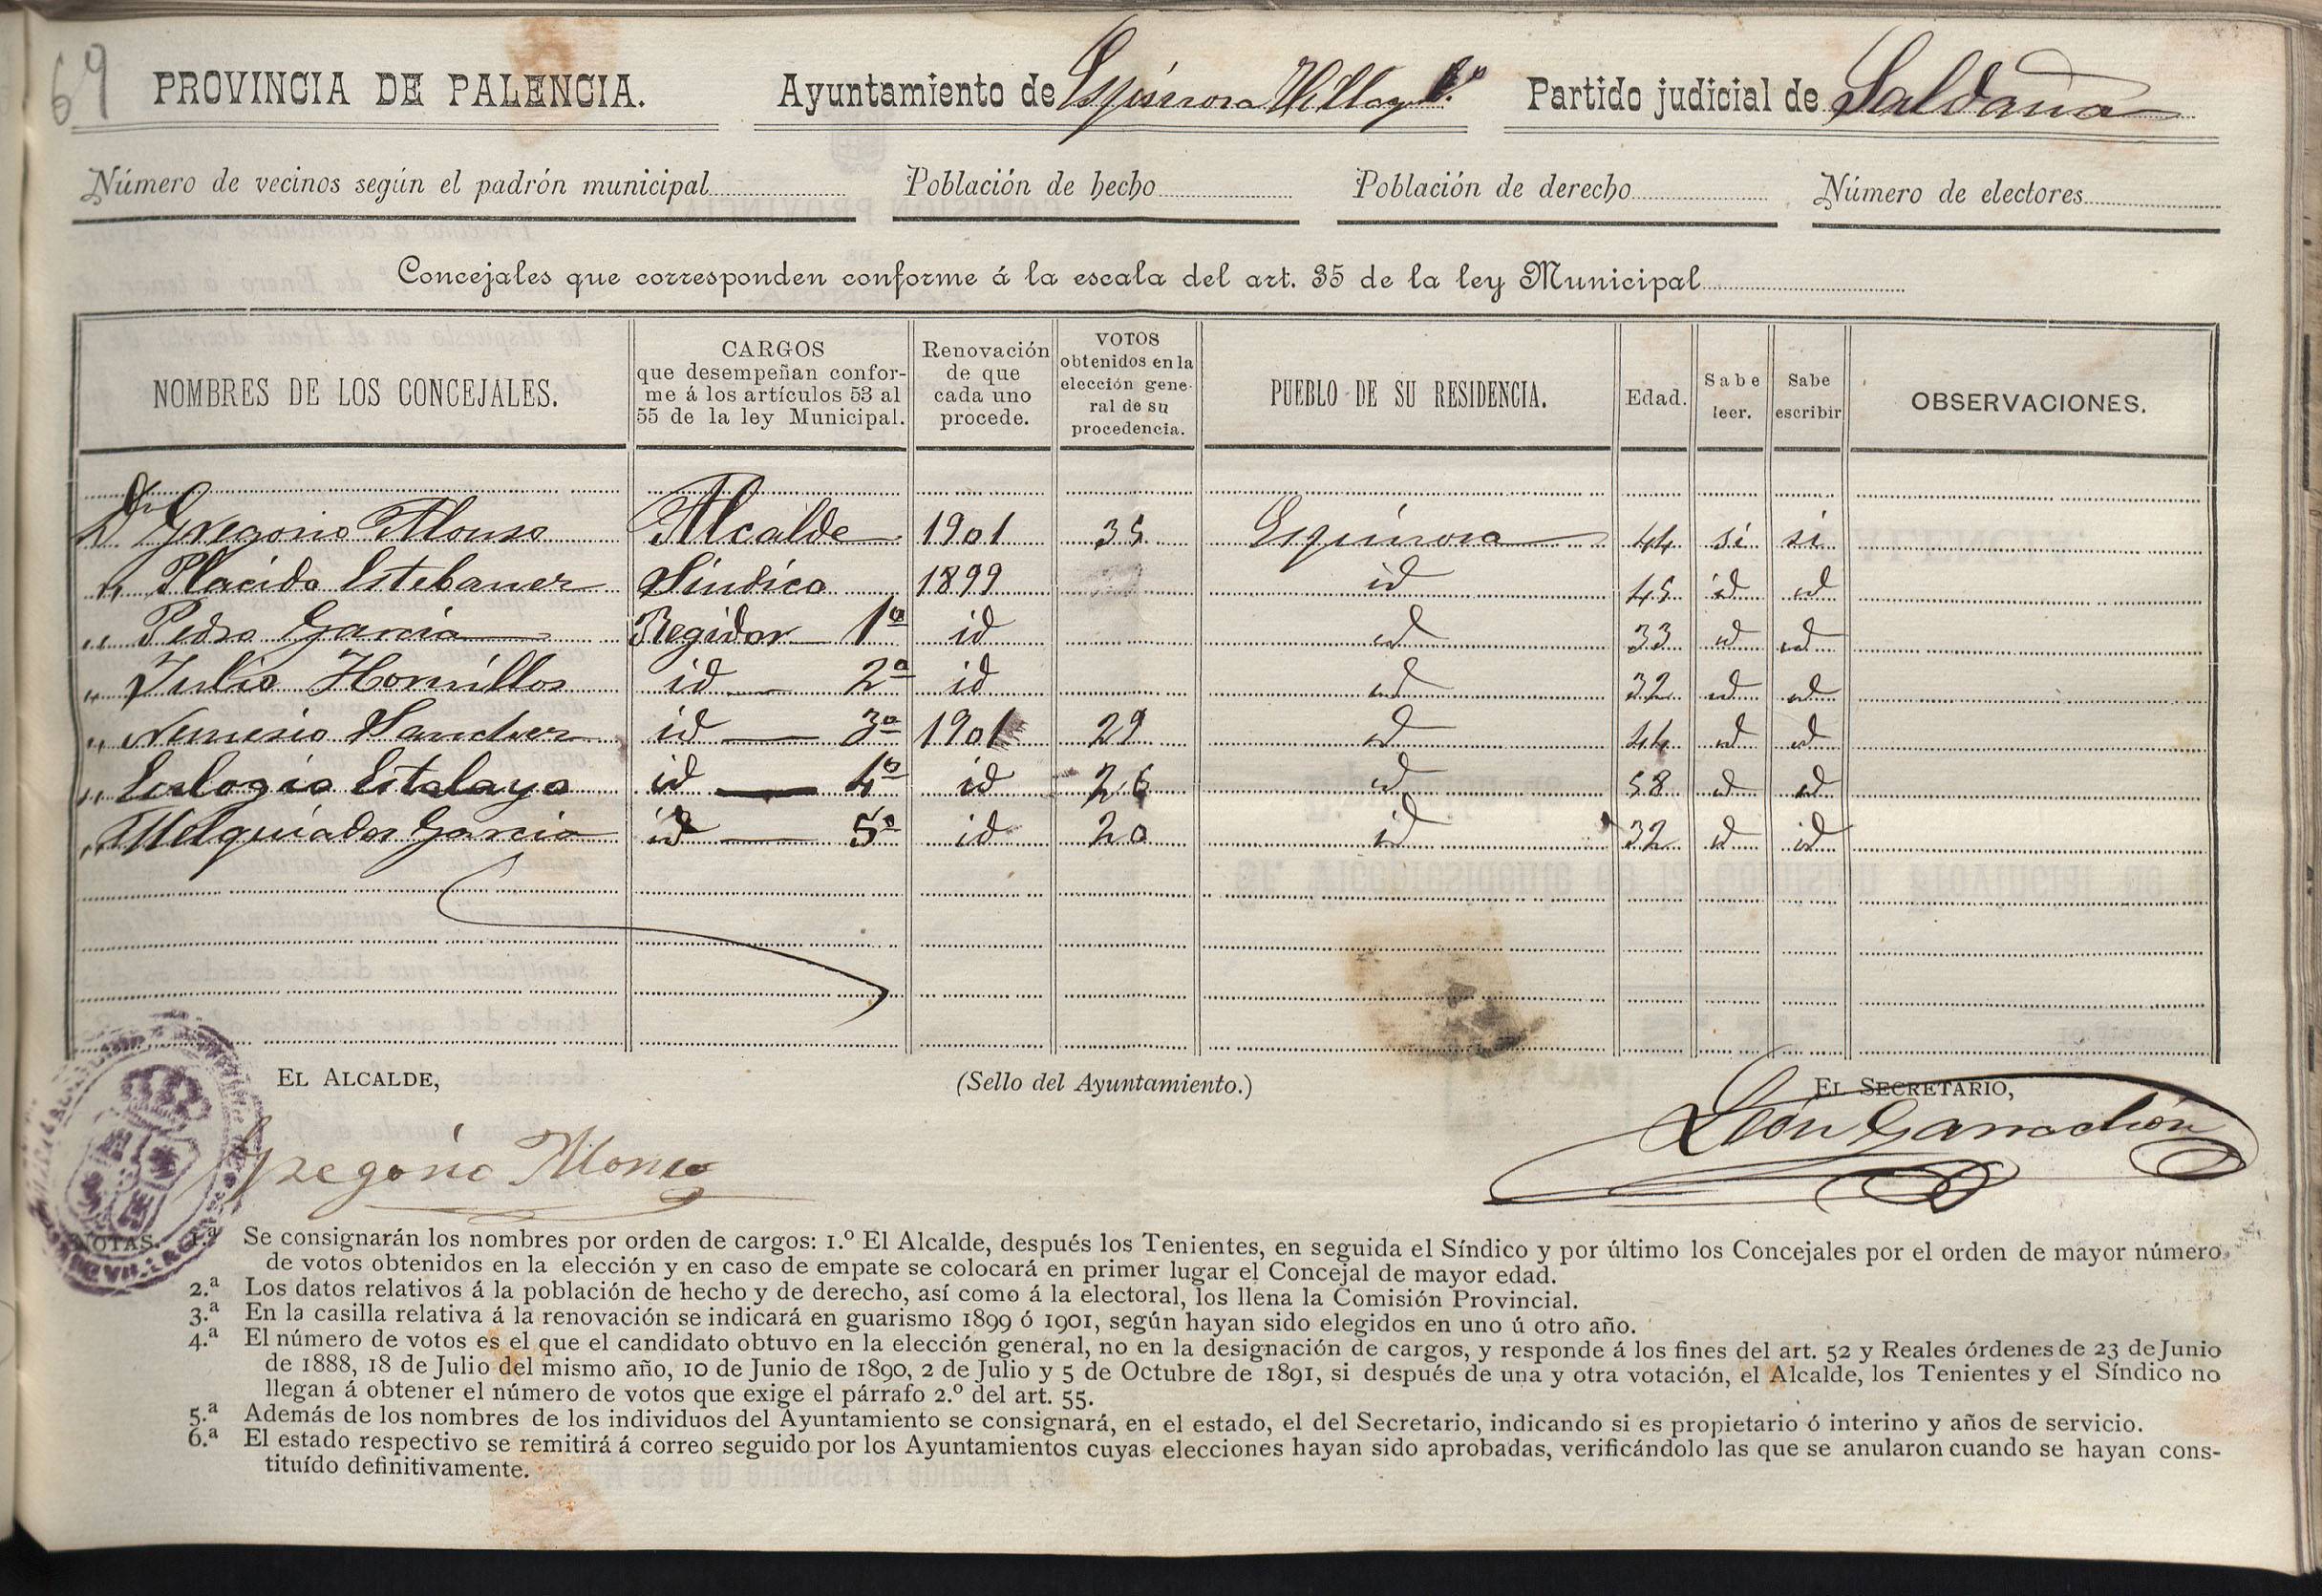 69
PROVINCIA DE PALENCIA. Ayuntamiento de Espinosa Villag.º Partido judicial de Saldaña
Número de vecinos según el padrón municipal Población de hecho Población de derecho Número de electores
Concejales que corresponden conforme á la escala del art. 35 de la ley Municipal
NOMBRES DE LOS CONCEJALES. CARGOS que desempeñan conforme á los artículos 53 al 55 de la ley Municipal. Renovación de que cada uno procede. VOTOS obtenidos en la elección general de su procedencia. PUEBLO DE SU RESIDENCIA. Edad. Sabe leer. Sabe escribir OBSERVACIONES.
Dn Gregorio Alonso Alcalde 1901 35 Espinosa 44 si si
" Placido Estebanez Síndico 1899 id 45 id id
" Pedro Garcia Regidor 1º id id 33 id id
" Julio Hornillos id 2º id id 32 id id
" Nemesio Sanchez id 3º 1901 29 id 44 id id
" Eulogio Estalayo id 4º id 26 id 58 id id
" Melquiades Garcia id 5º id 20 id 32 id id
EL ALCALDE, (Sello del Ayuntamiento.) EL SECRETARIO,
Gregorio Alonso León Garrachón
NOTAS. 1.ª Se consignarán los nombres por orden de cargos: 1.º El Alcalde, después los Tenientes, en seguida el Síndico y por último los Concejales por el orden de mayor número
de votos obtenidos en la elección y en caso de empate se colocará en primer lugar el Concejal de mayor edad.
2.ª Los datos relativos á la población de hecho y de derecho, así como á la electoral, los llena la Comisión Provincial.
3.ª En la casilla relativa á la renovación se indicará en guarismo 1899 ó 1901, según hayan sido elegidos en uno ú otro año.
4.ª El número de votos es el que el candidato obtuvo en la elección general, no en la designación de cargos, y responde á los fines del art. 52 y Reales órdenes de 23 de Junio
de 1888, 18 de Julio del mismo año, 10 de Junio de 1890, 2 de Julio y 5 de Octubre de 1891, si después de una y otra votación, el Alcalde, los Tenientes y el Síndico no
llegan á obtener el número de votos que exige el párrafo 2.º del art. 55.
5.ª Además de los nombres de los individuos del Ayuntamiento se consignará, en el estado, el del Secretario, indicando si es propietario ó interino y años de servicio.
6.ª El estado respectivo se remitirá á correo seguido por los Ayuntamientos cuyas elecciones hayan sido aprobadas, verificándolo las que se anularon cuando se hayan cons-
tituído definitivamente.